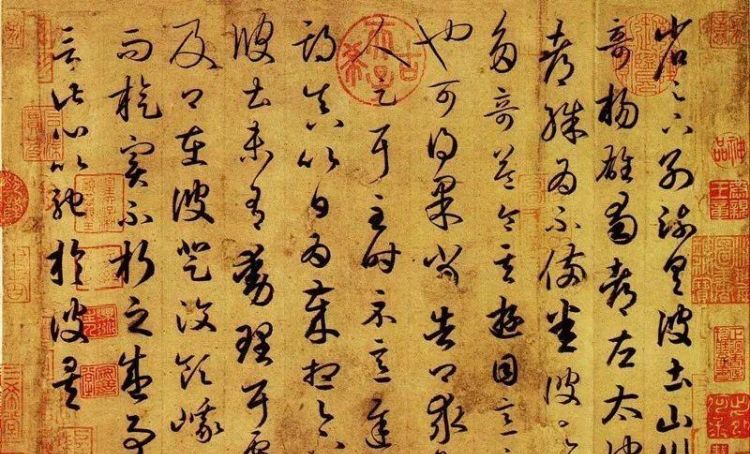 省足下別疏具彼土山川
奇楊雄蜀都左太沖
都殊為不備悉彼
多奇益令其遊目意
也可得果當告卿求
人足耳至時示意遲
期真以日為歲想足
彼土未有動理耳要
及卿在彼登汶領峨
而旋實不朽之盛事
言此心以馳於彼矣
古希天子